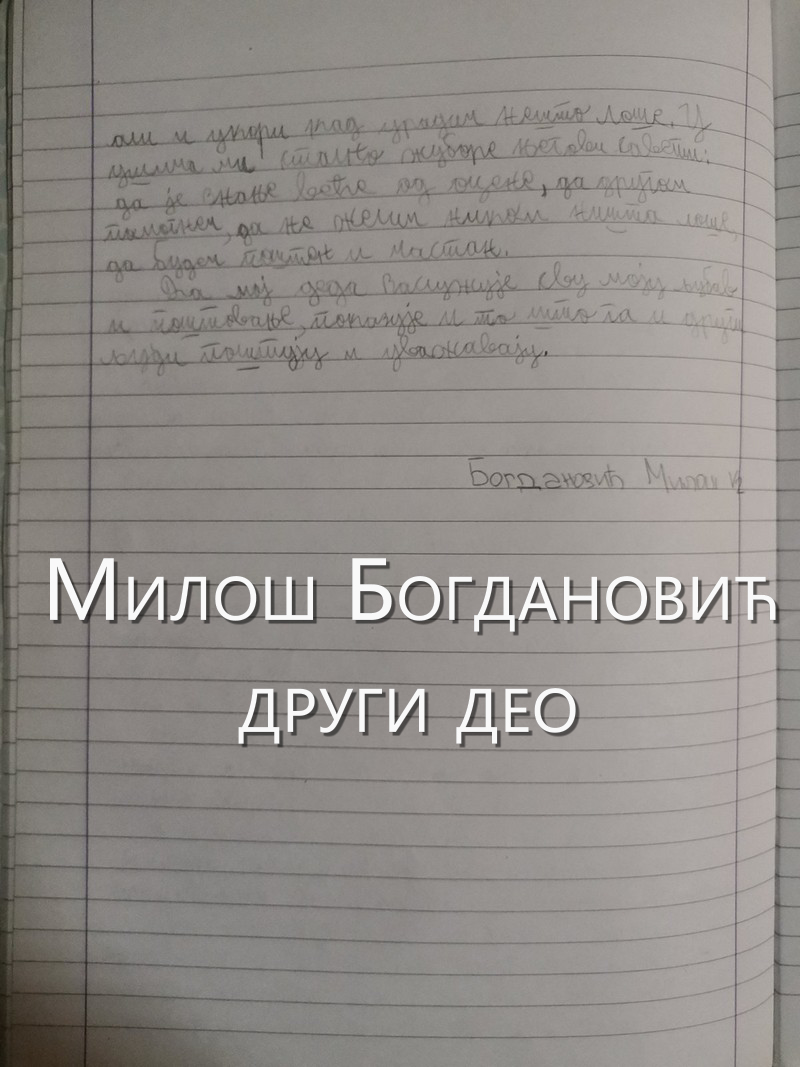 али и укори кад урадим нешто лоше. У
ушима ми стално жуборе његови савети:
да је знање веће од оцене, да другом
помогнем, да не желим ником ништа лоше,
да будем поштен и частан.
Да мој деда заслужује сву моју љубав
и поштовање, показује и то што га и други
људи поштују и уважавају.
Богдановић Милош
Милош Богдановић
други део